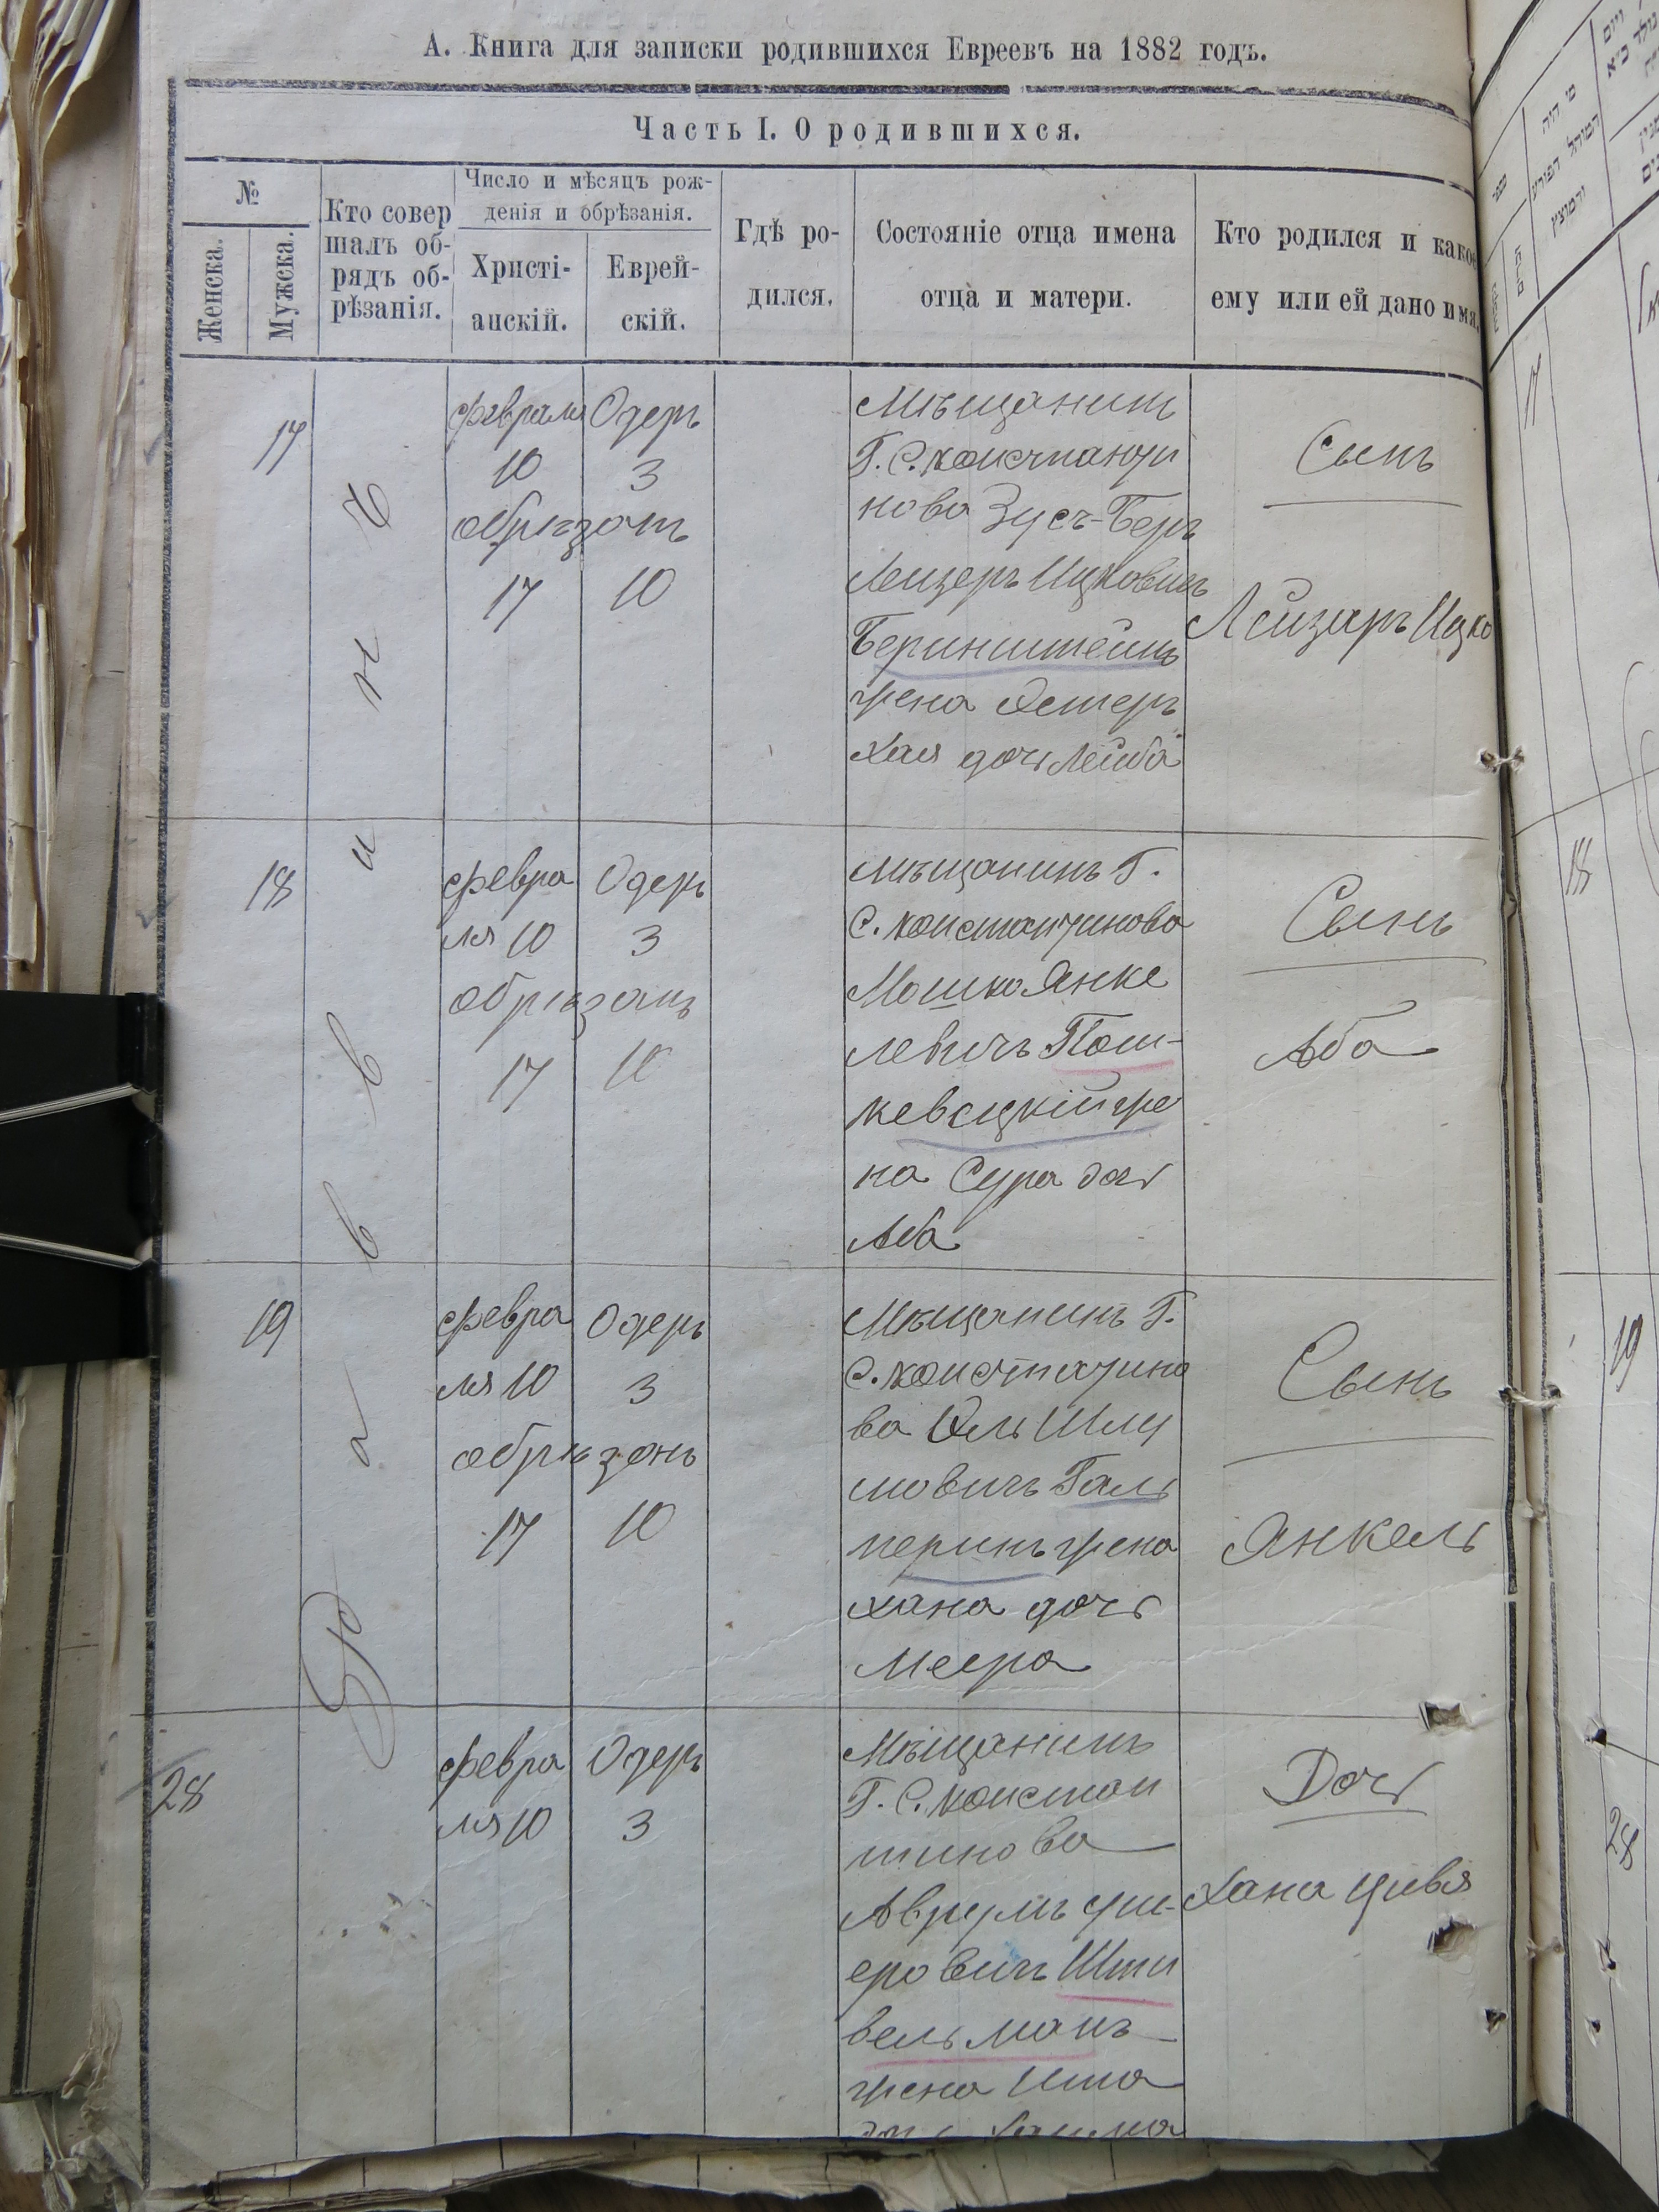 А. Книга для записки родившихся Евреевъ на 1882 годъ.
Часть I. О родившихся.
№
Женска.
Мужска.
Кто совер
шалъ об-
рядъ об-
рѣзанія.
Число и мѣсяцъ рож-
денія и обрѣзанія.
Христі-
анскій.
Еврей-
скій.
Гдѣ ро-
дился.
Состояніе отца имена
отца и матери.
Кто родился и какое
ему или ей дано имя.
17
Февраля
10
обрѣзанъ
17
Одеръ
3
10
Мѣщанинъ
Г. С. Константи
нова Зусъ-Беръ
Лейзеръ Ицковичъ
Беринштейнъ
жена Эстеръ
Хая дочь Лейба
Сынъ
Лейзаръ Ицко
18
Февра
ля 10
обрѣзанъ
17
Одеръ
3
10
Мѣщанинъ Г.
С. Константинова
Мошко Янке
левичъ Пош-
кевецкій же
на Сура дочь
Аба
Сынъ
Аба
19
Февра
ля 10
обрѣзанъ
17
Одеръ
3
10
Мѣщанинъ Г.
С. Константино
ва
мовичъ Галь
перинъ жена
Хана дочь
Меера
Сынъ
Янкель
28
Февра
ля 10
Одеръ
3
Мѣщанинъ
Г. С. Констан
тинова
Аврумъ
еровичъ Шти
вельманъ
жена Ита
Дочь
Хана Цивя
17
18
19
28